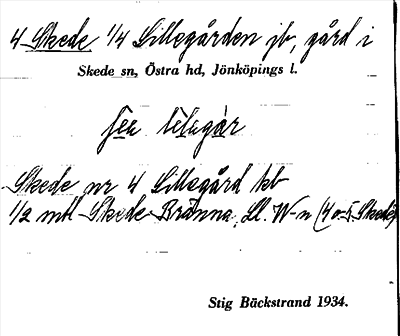 4 Skede 1/4 Lillegården jb, gård i
Skede sn, Östra hd, Jönköpings l.
Skede nr 4 Lillegård kb
1/2 mtl Skede Bränna, Ll. W-n (4 o. 5 Skede)
Stig Bäckstrand 1934.